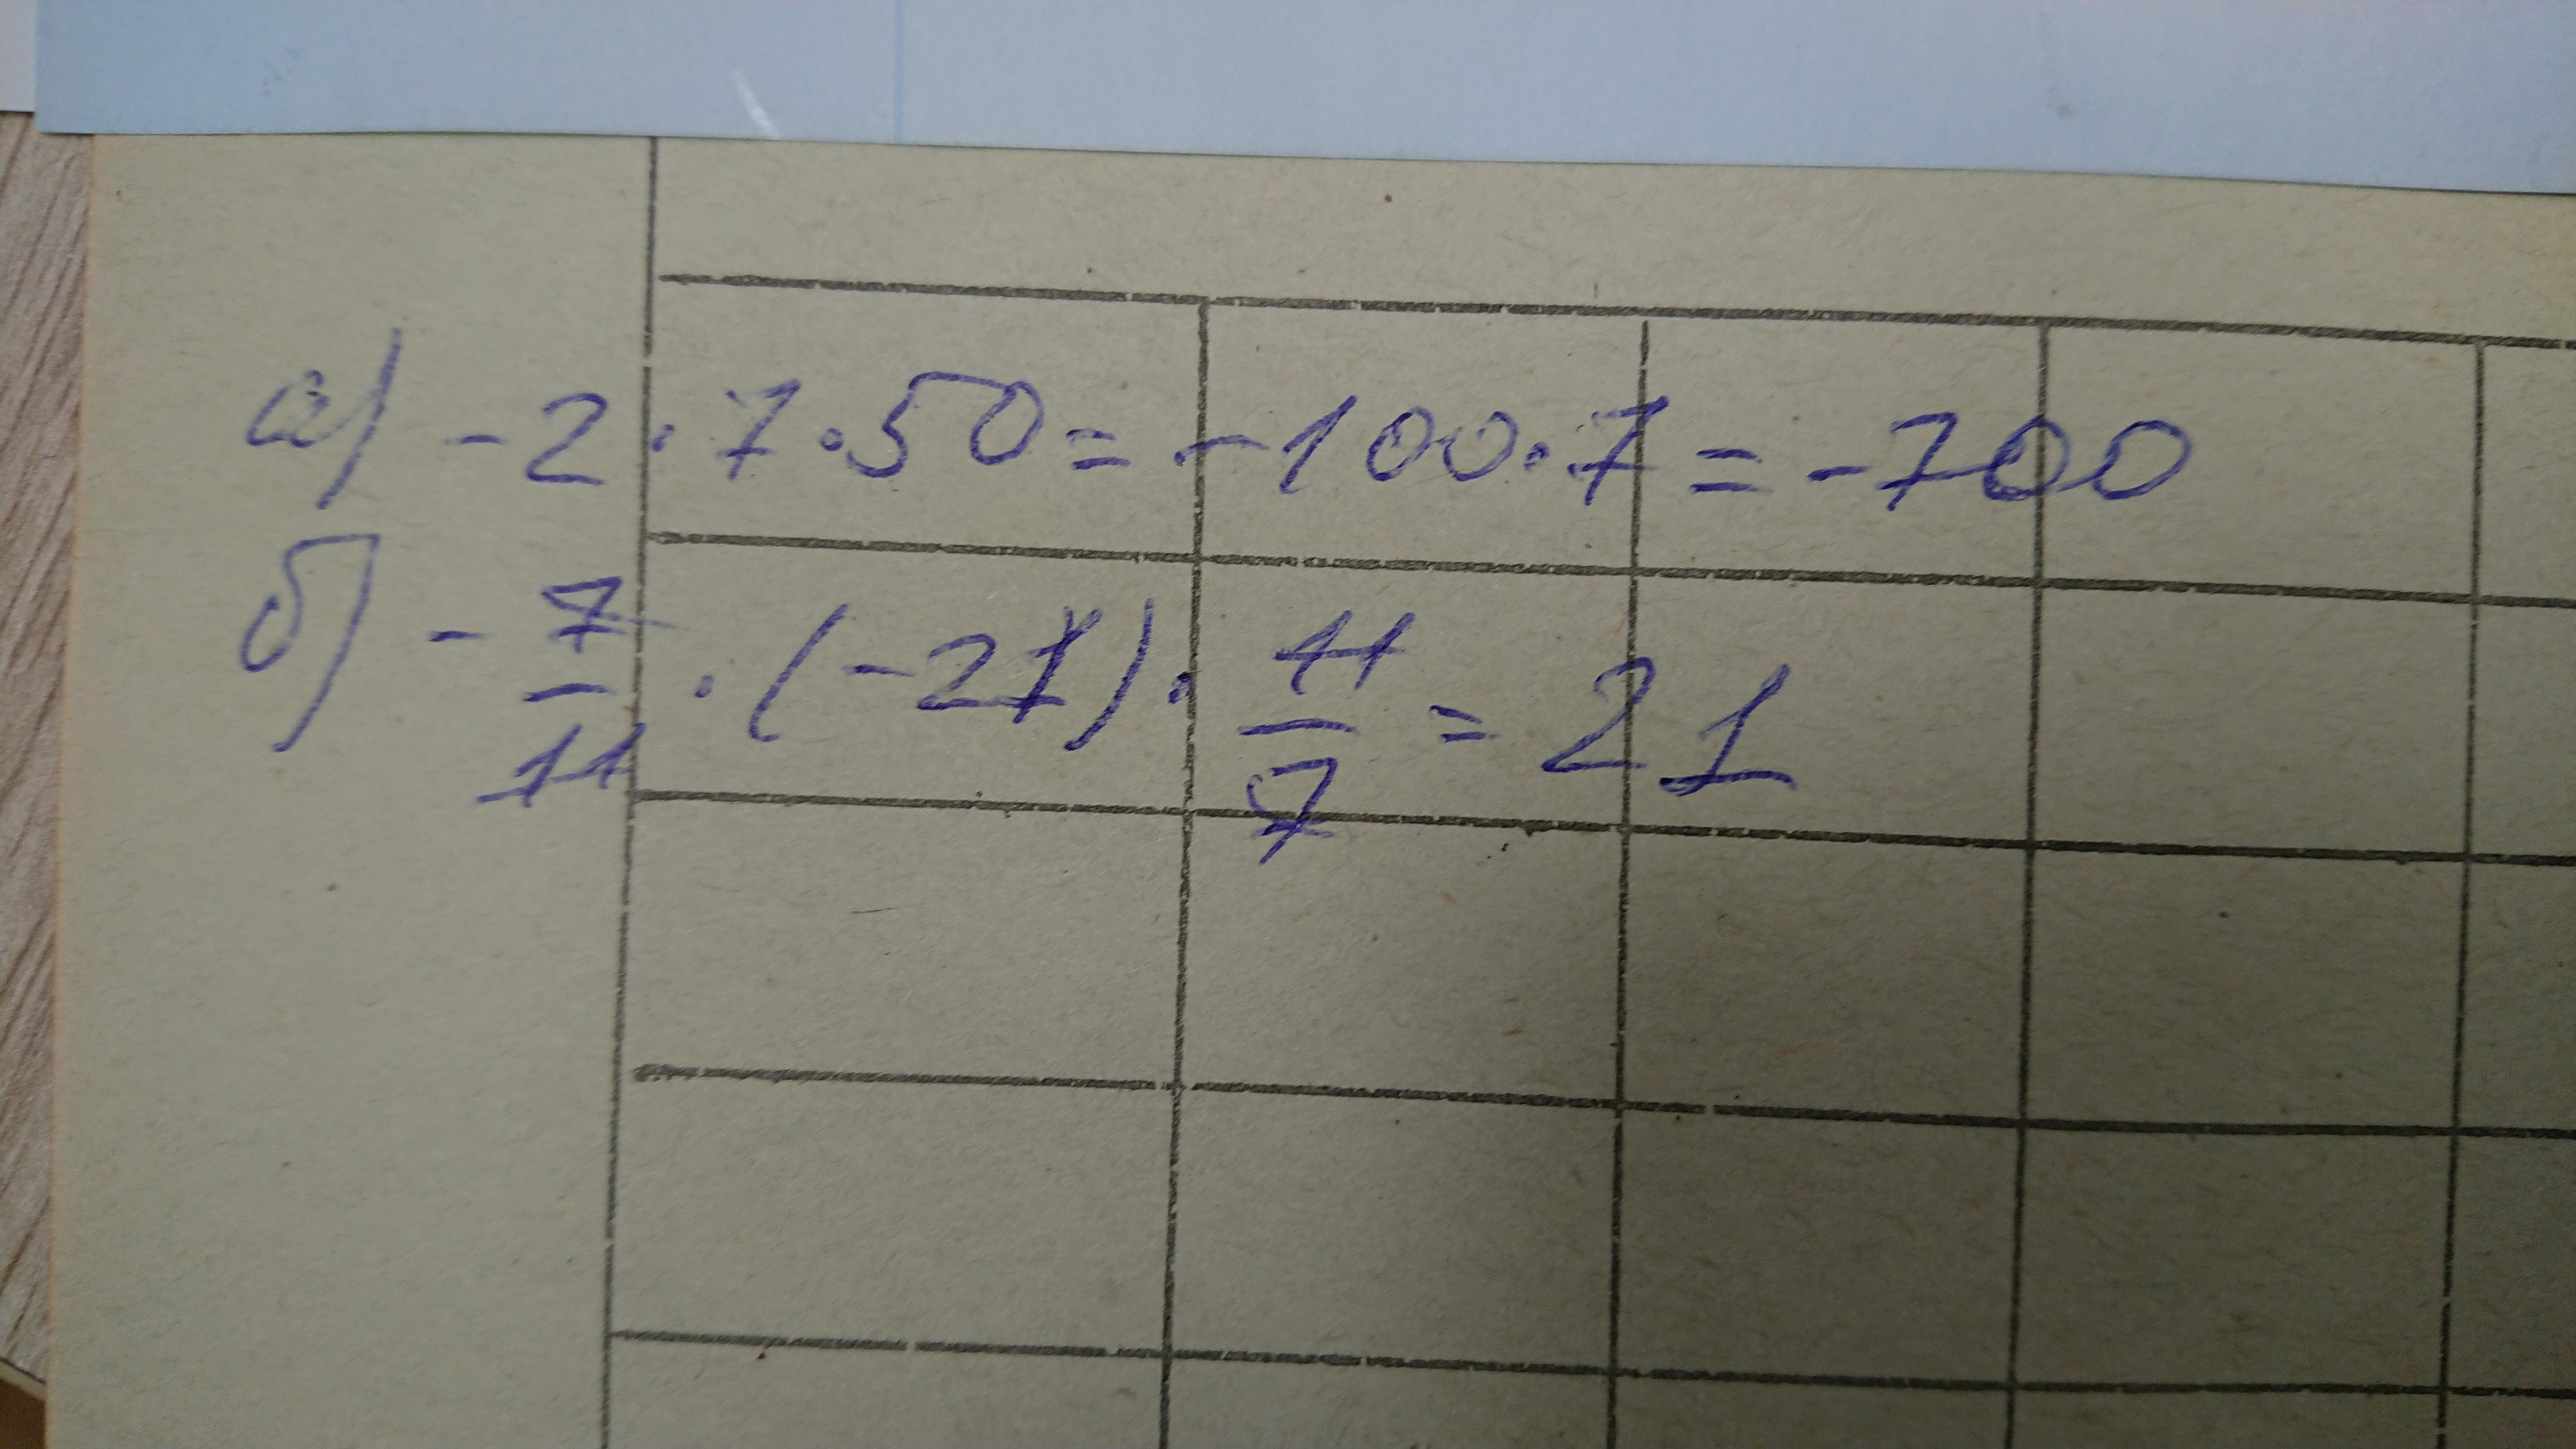 а) -2·7·50=-100·7=-700
б) - 7/11 · (-21) · 11/7 = 21